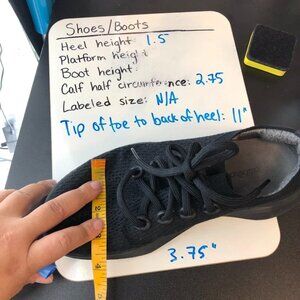 Shoes/Boots
Heel height: 1.5
Platform height:
Boot height:
Calf half circumference: 2.75
Labeled size: N/A
Tip of toe to back of heel: 11"
3.75"